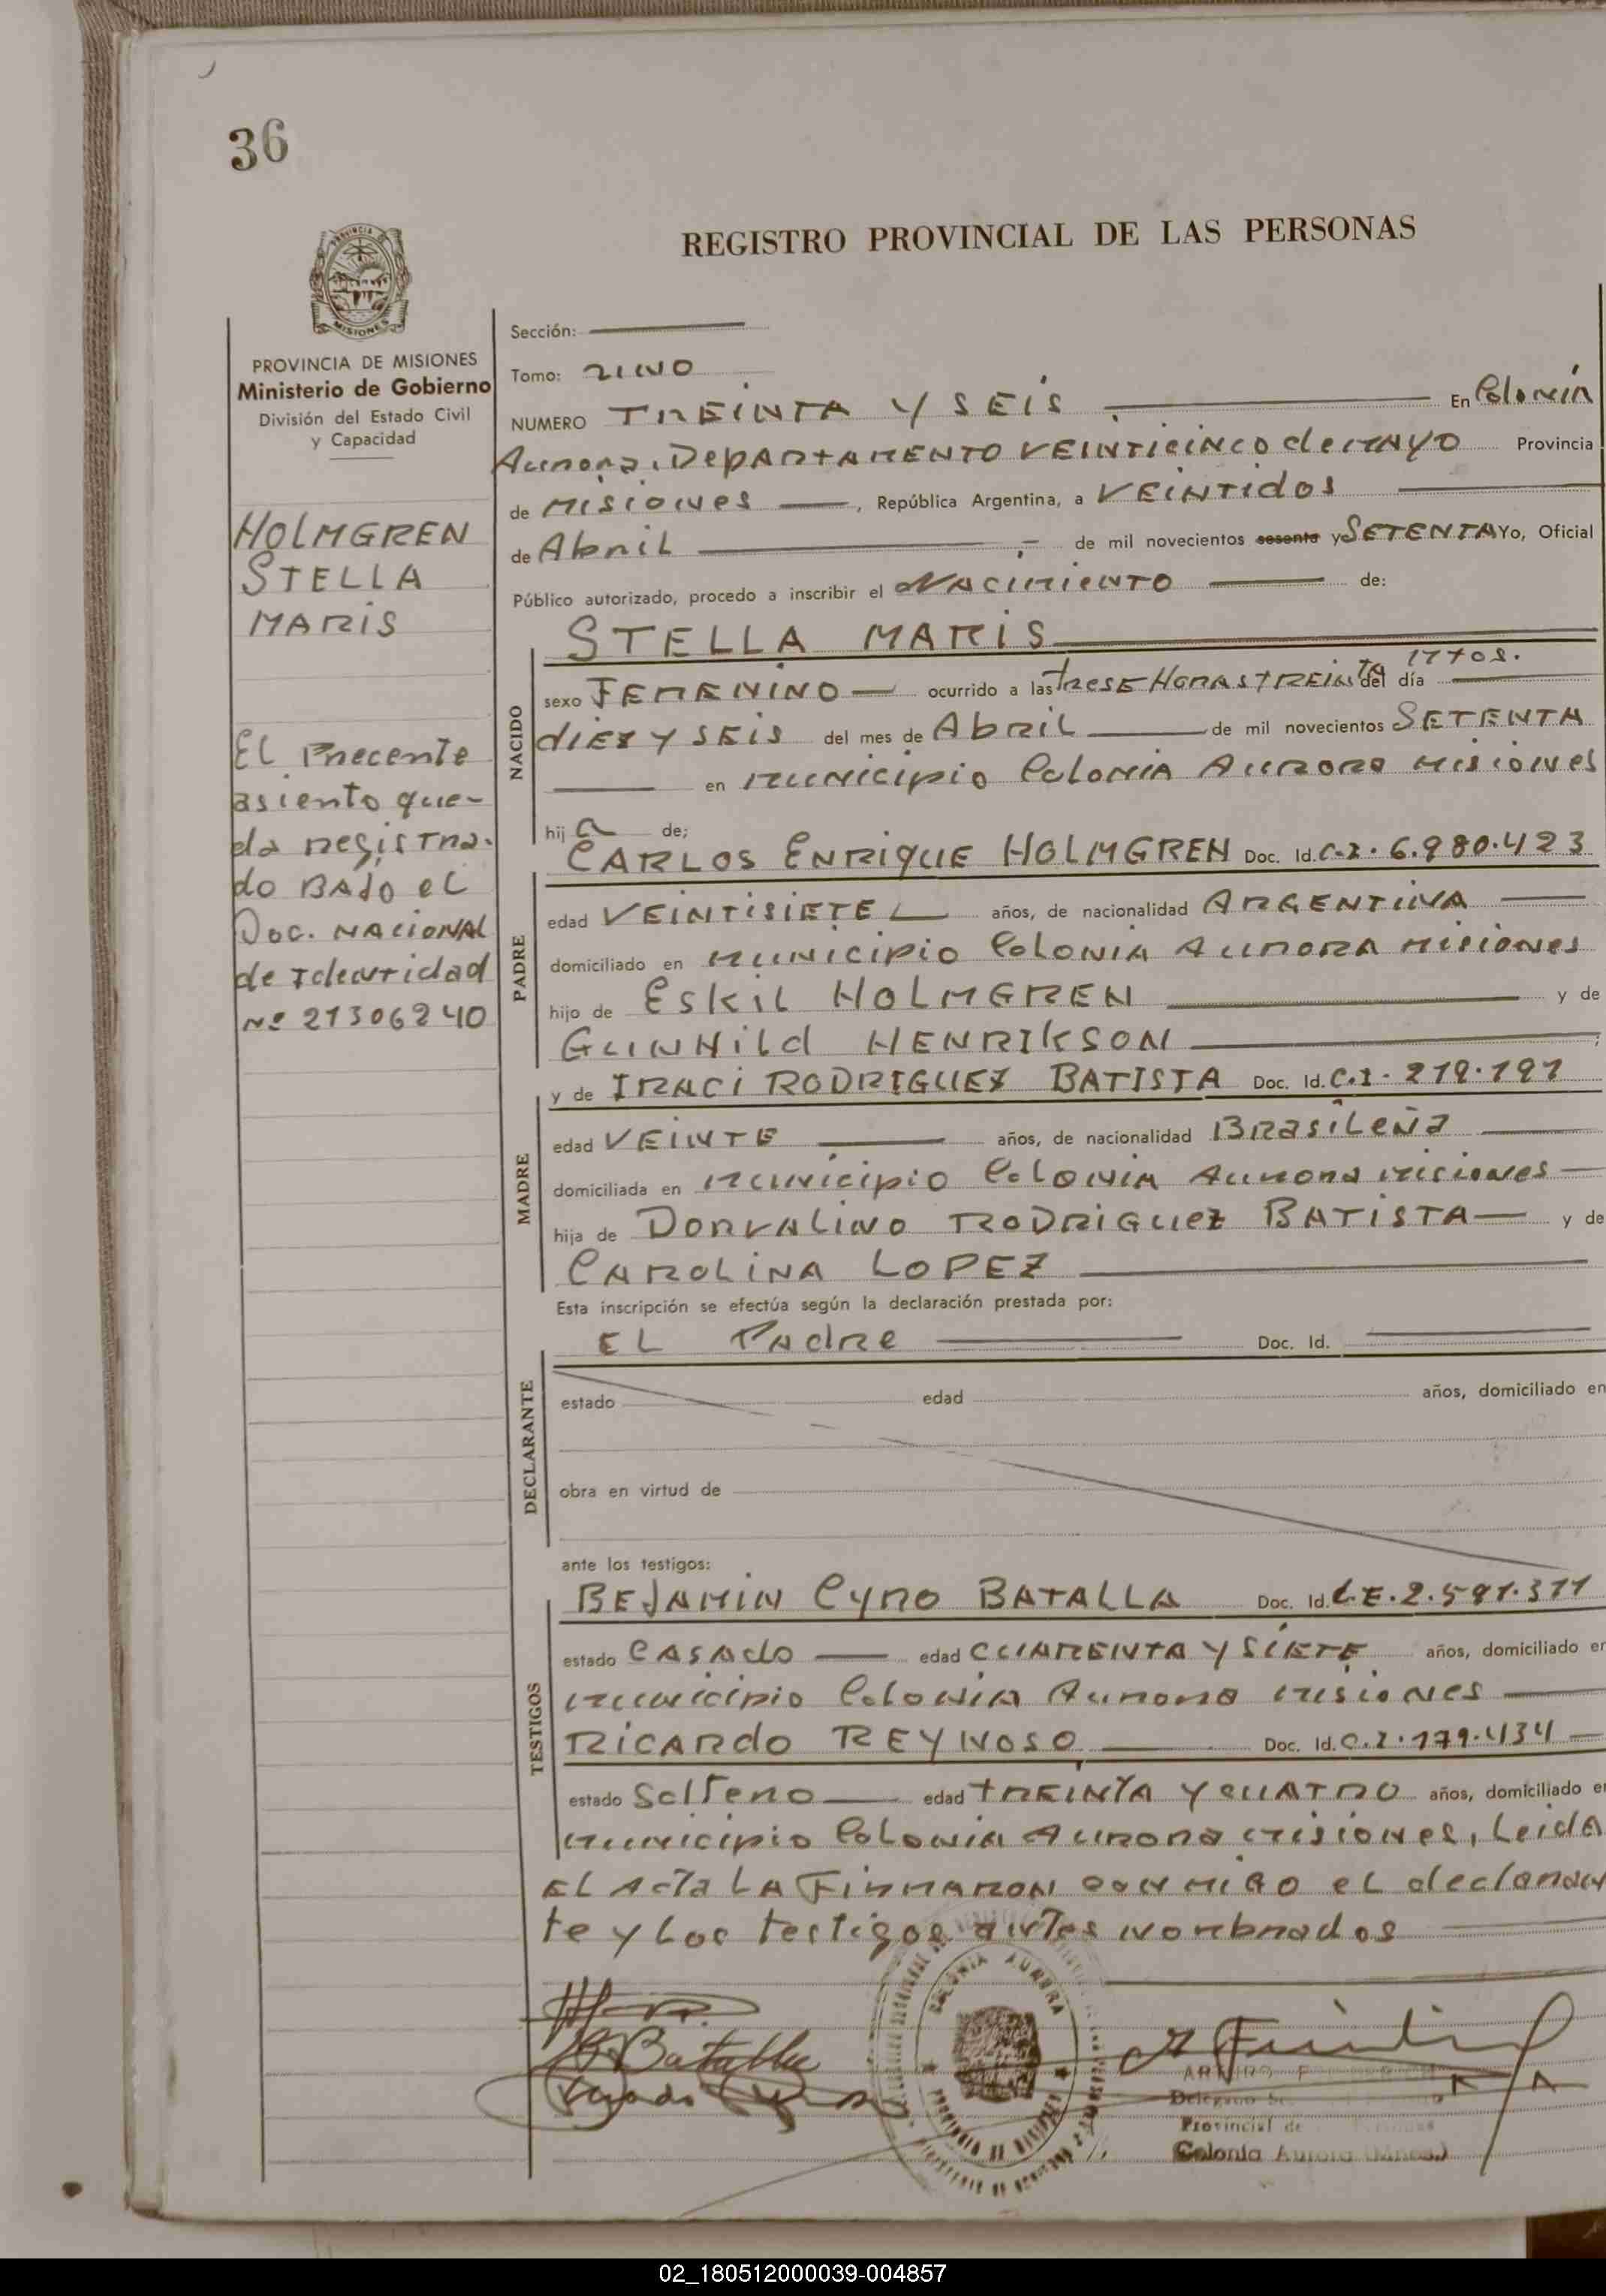 36
PROVINCIA
MISIONES
REGISTRO PROVINCIAL DE LAS PERSONAS
PROVINCIA DE MISIONES
Ministerio de Gobierno
División del Estado Civil
y Capacidad
HOLMGREN
STELLA
MARIS
El Precente
asiento que-
da registra-
do BAJo el
Doc. NACIONAL
de Identidad
Nº 21306240
Sección:
Tomo: UNO
NUMERO TREINTA Y SEIS En Colonia
Aurora, DepARtAMENTO VEINTICINCO de MAYO Provincia
de Misiones, República Argentina, a VEINTIdos
de Abril de mil novecientos sesenta y SETENTA Yo, Oficial
Público autorizado, procedo a inscribir el NAcimieNTO de:
STELLA MARIS
NACIDO
sexo FEMENINO ocurrido a las treSE HORAS TREINTA 1770S. del día
diez y SEIS del mes de Abril de mil novecientos SETENTA
en municipio Colonia Aurora misiones
hij a de;
CARLOS ENRIQUE HOLMGREN Doc. Id. C.I. 6.980.423
PADRE
edad VEINTISIETE años, de nacionalidad ARGENTINA
domiciliado en municipio Colonia Aurora misiones
hijo de Eskil HOLMGREN y de
GUNHild HENRIKSON;
y de IRACI RODRIGUEZ BATISTA Doc. Id. C.I. 219.191
MADRE
edad VEINTE años, de nacionalidad BRasileña
domiciliada en municipio Colonia Aurora misiones
hija de DORVALINO RODRIGUEZ BATISTA y de
CAROLINA LOPEZ
Esta inscripción se efectúa según la declaración prestada por:
EL Padre Doc. Id.
DECLARANTE
estado edad años, domiciliado en
obra en virtud de
ante los testigos:
BEJAMIN Cyro BATALLA Doc. Id. L.E. 2.591.311
TESTIGOS
estado CASAdo edad CUARENTA Y SIETE años, domiciliado en
municipio Colonia Aurora misiones
RICARdo REYNOSO Doc. Id. C.I. 179.434
estado Soltero edad tREINTA Y CUATRO años, domiciliado en
municipio Colonia Aurora misiones, Leida
EL Acta LA FirMARON conmigo el declaran
te y Los testigos antes nombrados
COLONIA AURORA
PROVINCIA DE MISIONES
B. Batalla
ARTURO
Provincial de
Colonia Aurora (Mnes.)
02_180512000039-004857